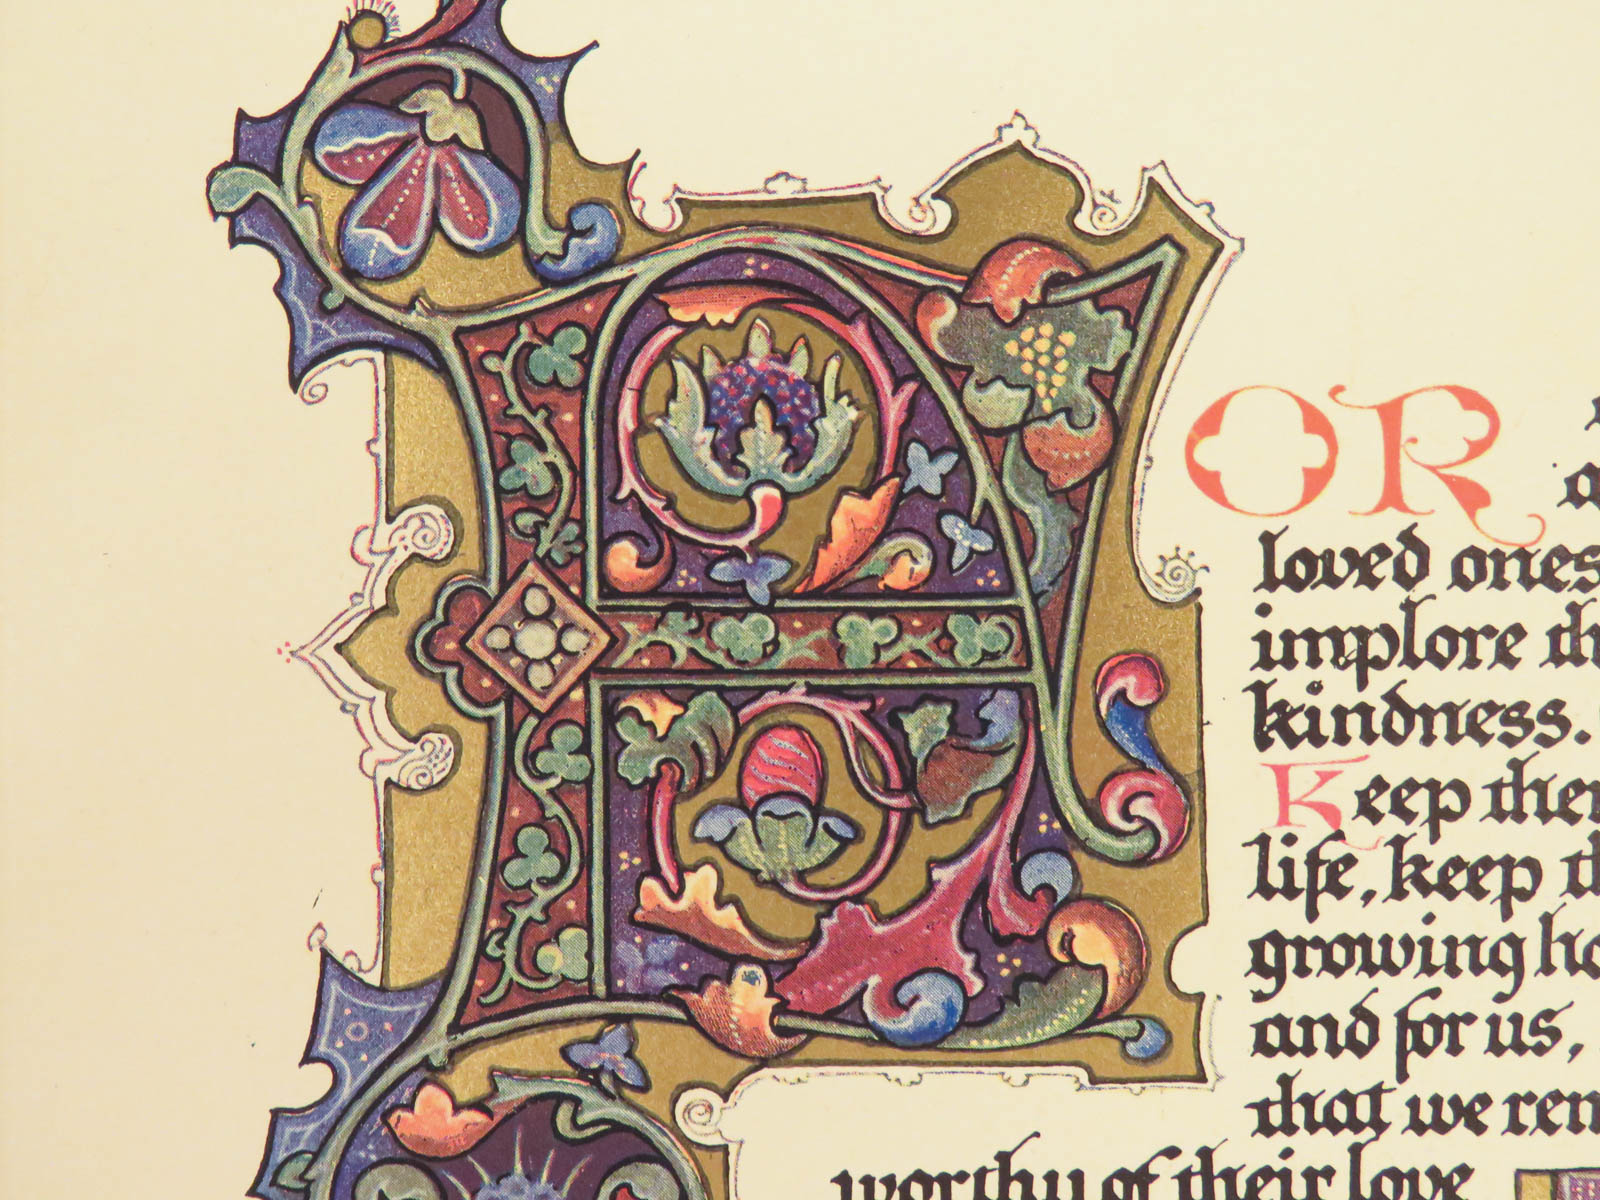 FOR
loved ones
implore
kindness.
Keep
life, keep
growing
and for us,
that we
worthy of their love